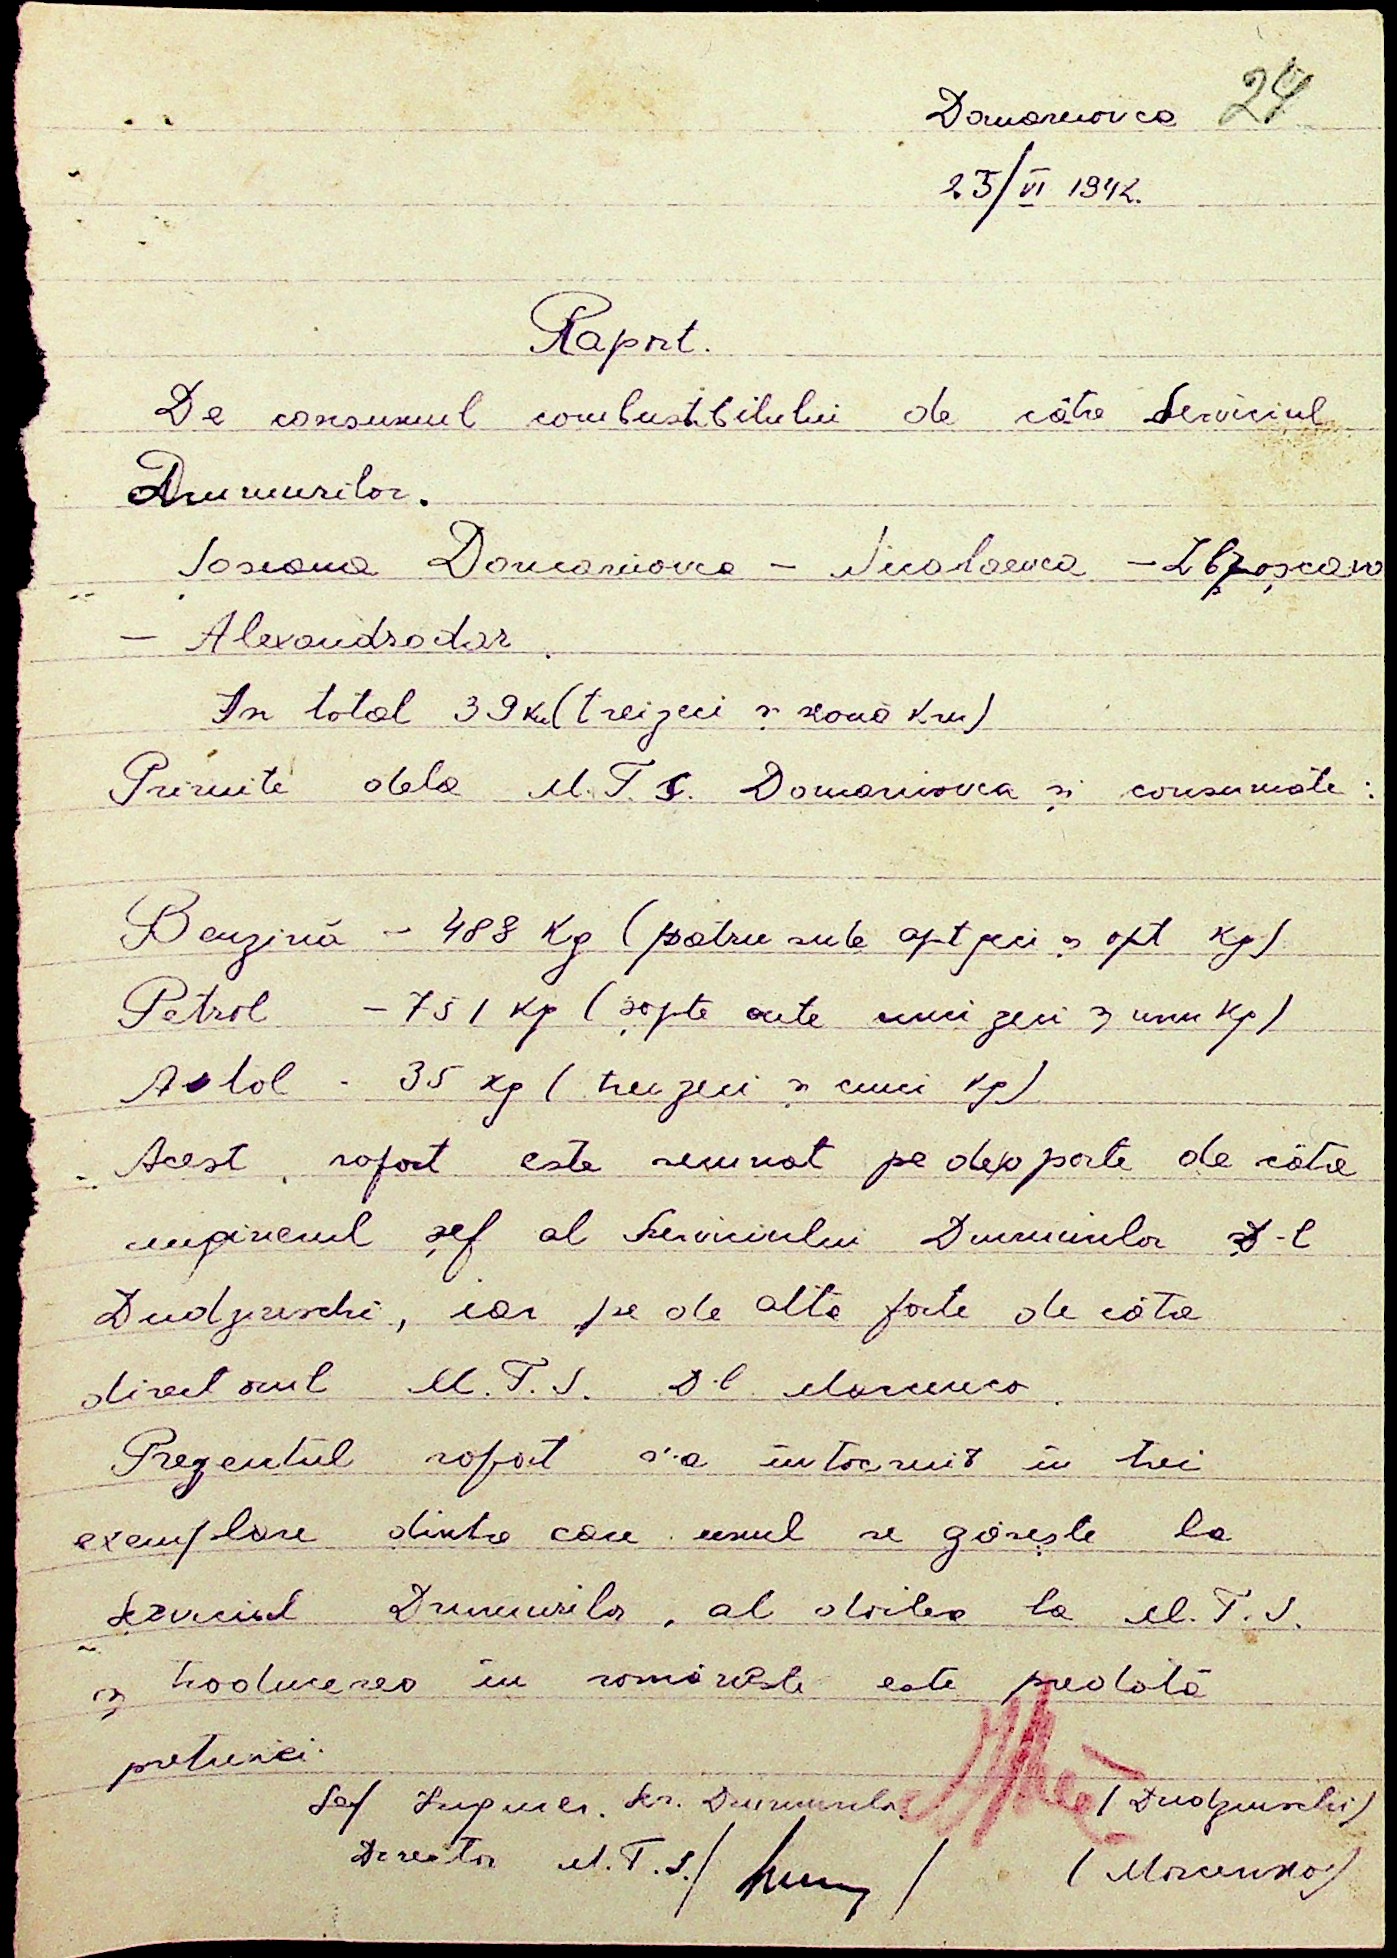 Domaniovca 24
25/VI 1942.
Raport.
De consumul combustibilului de către Serviciul
Drumurilor.
Soseaua Domaniovca - Nicolaevca -
- Alexandrodar.
In total 39 km (treizeci și nouă km)
Primite dela M.T.S. Domaniovca și consumate:
Benzină - 488 kg (patru sute optzeci și opt kg)
Petrol - 751 kg (șapte sute cinci zeci și unu kg)
Avtol - 35 kg (treizeci și cinci kg)
Acest raport este semnat pe deoparte de către
inginerul șef al Serviciului Drumurilor D-l
Dudzinschi, iar pe de altă parte de către
directorul M.T.S. D-l Marcenco.
Prezentul raport s'a întocmit în trei
exemplare dintre care unul se găsește la
Serviciul Drumurilor, al doilea la M.T.S.
și traducerea în românește este predată
preturei.
Șef Inginer. Ser. Drumurilor (Dudzinschi)
Director M.T.S. / / (Marcenko)